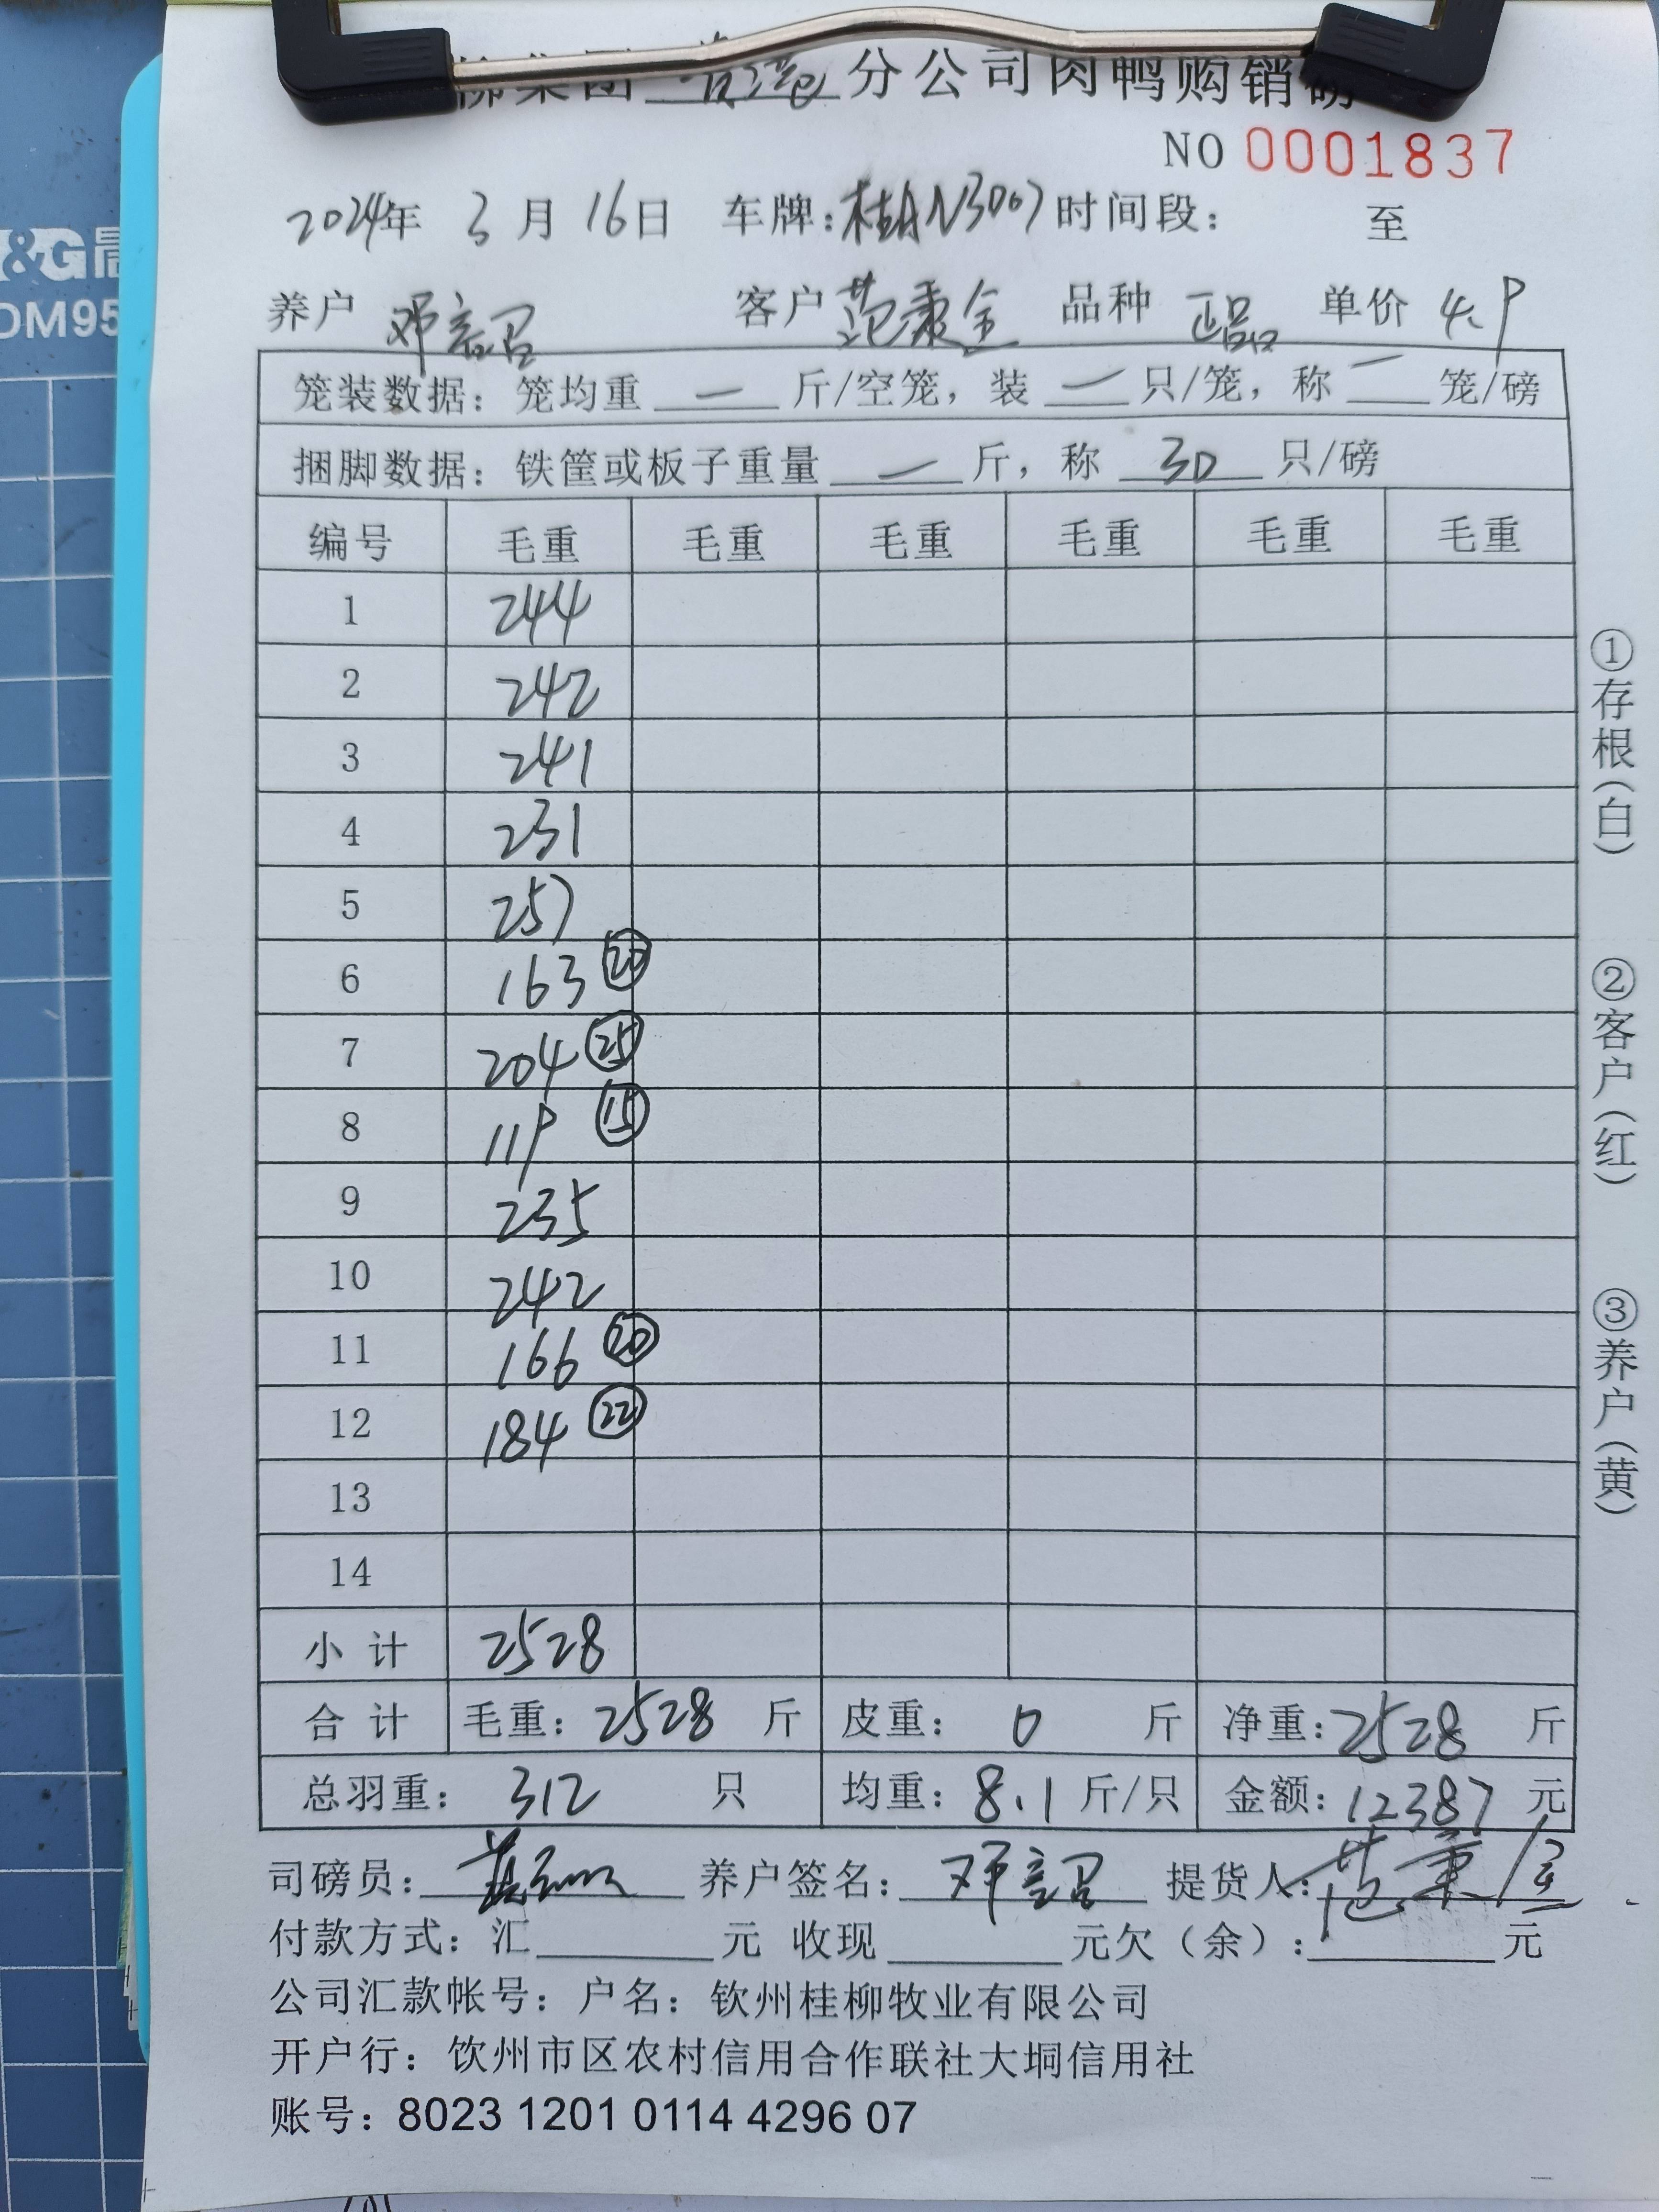 分公司肉鸭购销磅
NO 0001837
2024年 3月 16日 车牌:桂AN3007 时间段: 至
养户 邓言召 客户 范秉全 品种 正品 单价 4.9
笼装数据: 笼均重 一 斤/空笼, 装 一 只/笼, 称 一 笼/磅
捆脚数据: 铁筐或板子重量 一 斤, 称 30 只/磅
编号 毛重 毛重 毛重 毛重 毛重 毛重
1 244
2 242
3 241
4 231
5 257
6 163 ⑳
7 204 ㉕
8 119 ⑮
9 235
10 242
11 166 ⑳
12 184 ㉒
13
14
小计 2528
合计 毛重: 2528 斤 皮重: 0 斤 净重: 2528 斤
总羽重: 312 只 均重: 8.1 斤/只 金额: 12387 元
司磅员: 养户签名: 邓言召 提货人: 范秉全
付款方式: 汇 元 收现 元欠（余）: 元
公司汇款帐号: 户名: 钦州桂柳牧业有限公司
开户行: 钦州市区农村信用合作联社大垌信用社
账号: 8023 1201 0114 4296 07
①存根(白)
②客户(红)
③养户(黄)
&G
DM95